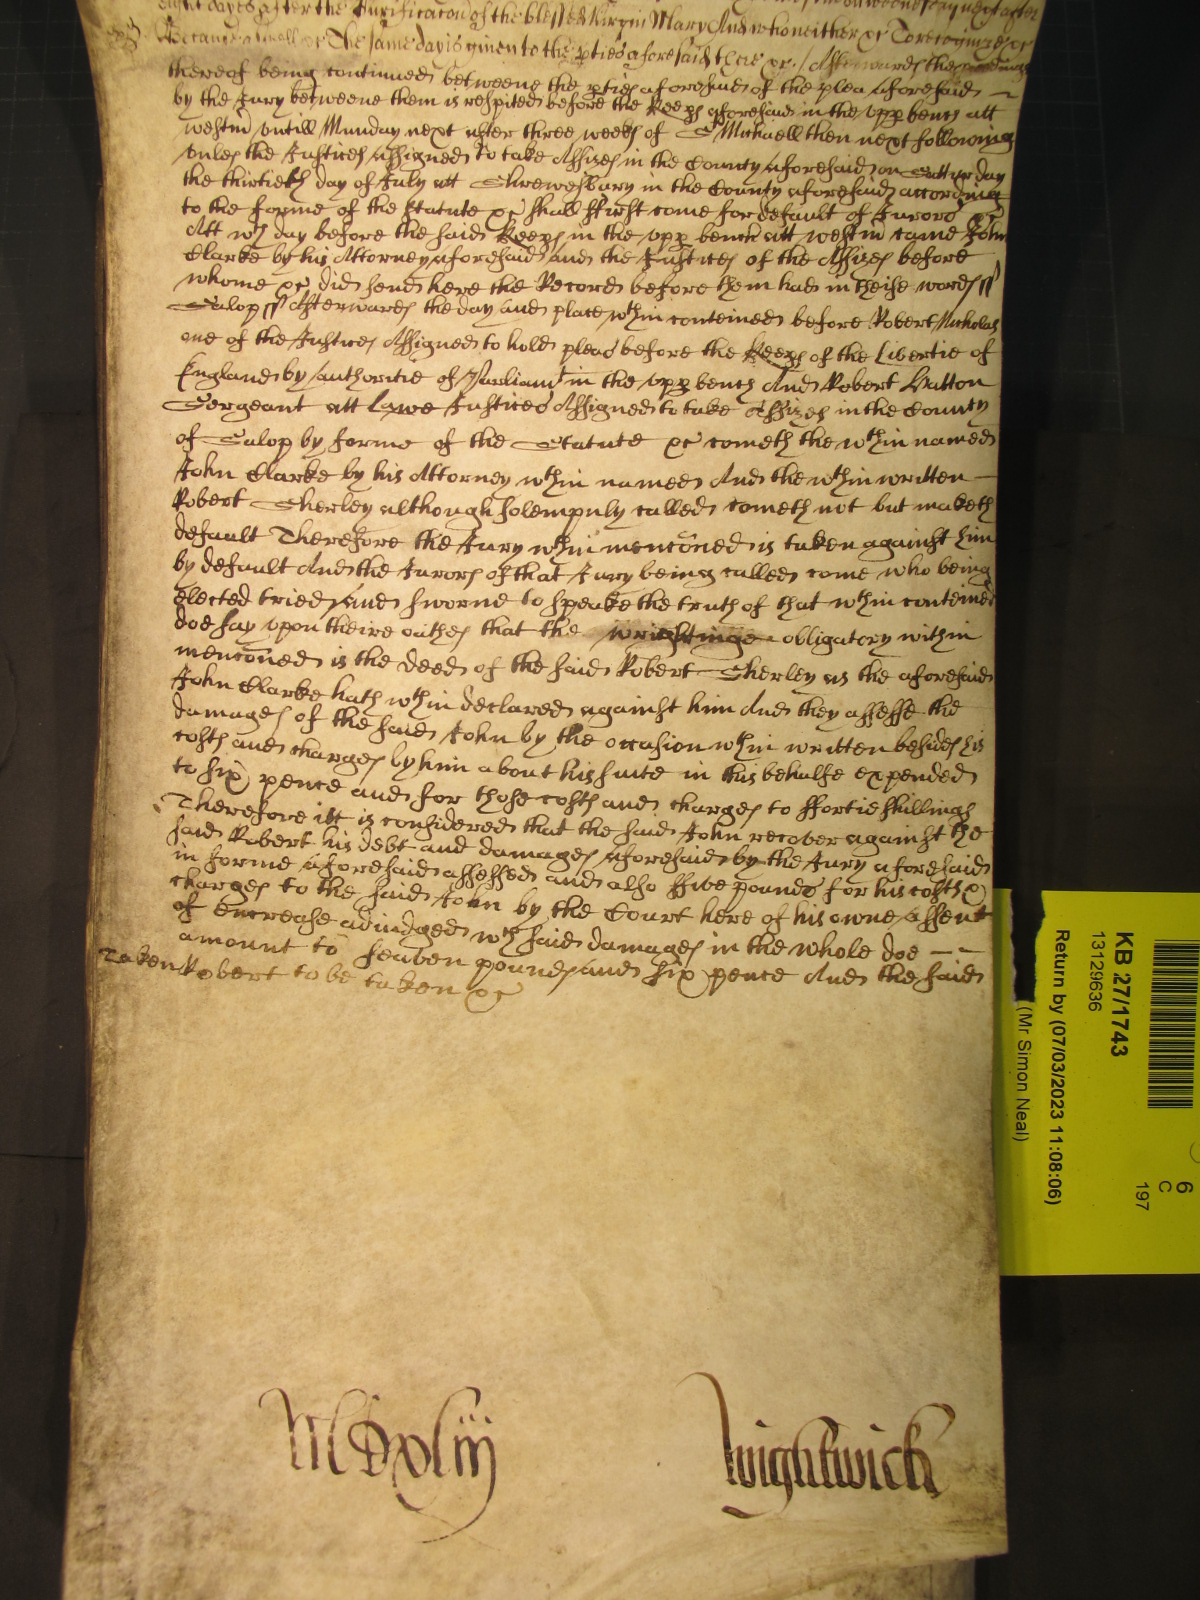 eight dayes after the Purificacon of the blessed Virgin Mary And who neither &c To recognize &c
Because aswell &c The same day is given to the pties aforesaid there &c / Afterwards the
thereof being continued betweene the pties aforesaid of the plea aforesaid
by the Jury betweene them is respited before the Keeps aforesaid in the upp bench att
westm untill Munday next after three weeks of St Michaell then next following
unles the Justices assigned to take Assizes in the County aforesaid on Satturday
the thirtieth day of July att Shrewesbury in the County aforesaid according
to the forme of the Statute &c shall ffirst come for default of Jurors &c
Att wch day before the said Keeps in the upp bench att westm came John
Clarke by his Attorney aforesaid and the Justices of the Assizes before
whome &c did send here the Record before them had in theise words ss
Salop ss Afterwards the day and place wthin conteined before Robert Nicholas
one of the Justices Assigned to hold pleas before the Keeps of the Libertie of
England by authoritie of Parliamt in the upp bench And Robert Hatton
Sergeant att Lawe Justices Assigned to take Assizes in the County
of Salop by forme of the Statute &c cometh the wthin named
John Clarke by his Attorney wthin named And the wthin written
Robert Sherley although solempnly called cometh not but maketh
default Therefore the Jury wthin menconed is taken against him
by default And the Jurors of that Jury being called come who being
elected tried and sworne to speake the truth of that wthin conteined
doe say upon theire oathes that the wrightinge obligatory within
menconed is the deed of the said Robert Sherley as the aforesaid
John Clarke hath wthin declared against him And they assesse the
damages of the said John by the occasion wthin written besides his
costs and charges by him about his suite in this behalfe expended
to six pence and for those costs and charges to ffortie shillings
Therefore itt is considered that the said John recover against the
said Robert his debt and damages aforesaid by the Jury aforesaid
in forme aforesaid assessed and also ffive pounds for his costs &
charges to the said John by the Court here of his owne assent
of encrease adiudged wch said damages in the whole doe
amount to seaven pounds and six pence And the said
Taken Robert to be taken &c
MDxliij Wightwick
KB 27/1743
13129636
Return by (07/03/2023 11:08:06)
(Mr Simon Neal)
6
C
197